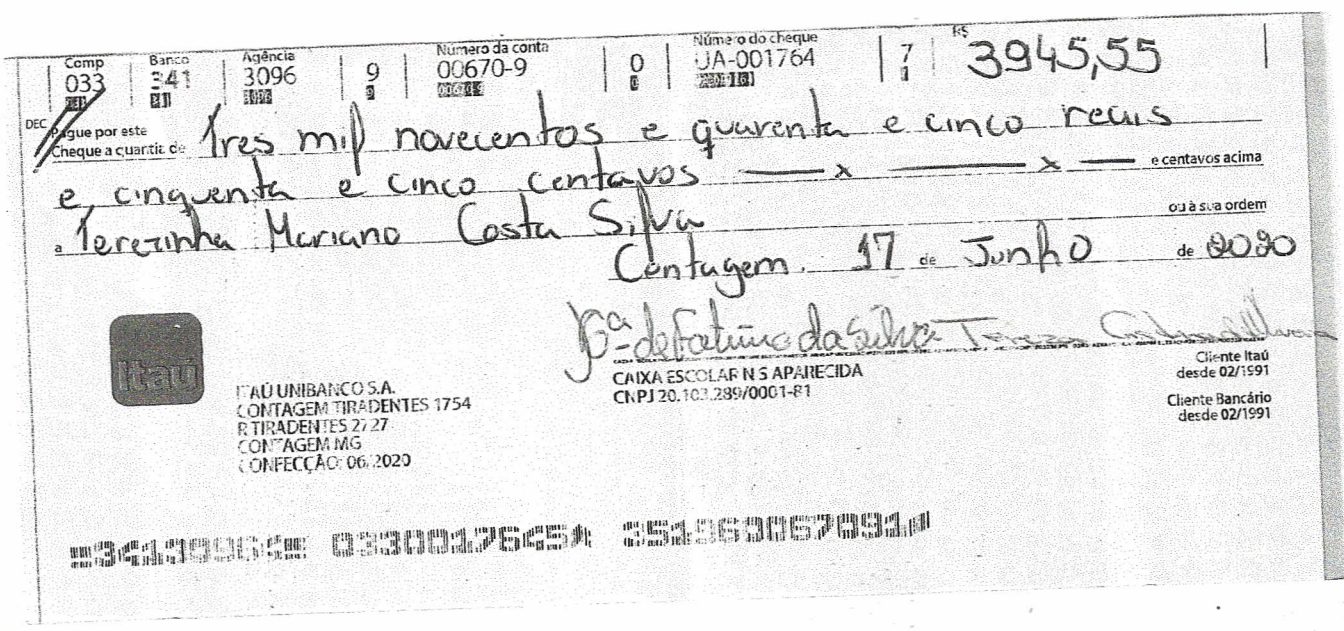 Comp Banco Agência Número da conta Número do cheque R$
033 341 3096 9 00670-9 0 UA-001764 7 3945,55
DEC
Pague por este
Cheque a quantia de Tres mil novecentos e quarenta e cinco reais
e cinquenta e cinco centavos — x — x — e centavos acima
a Terezinha Mariano Costa Silva ou à sua ordem
Contagem, 17 de Junho de 2020
de Fatima da Silva
Itaú
ITAÚ UNIBANCO S.A.
CONTAGEM TIRADENTES 1754
R TIRADENTES 2727
CONTAGEM MG
CONFECÇÃO: 06/2020
CAIXA ESCOLAR N S APARECIDA
CNPJ 20.103.289/0001-81
Cliente Itaú
desde 02/1991
Cliente Bancário
desde 02/1991